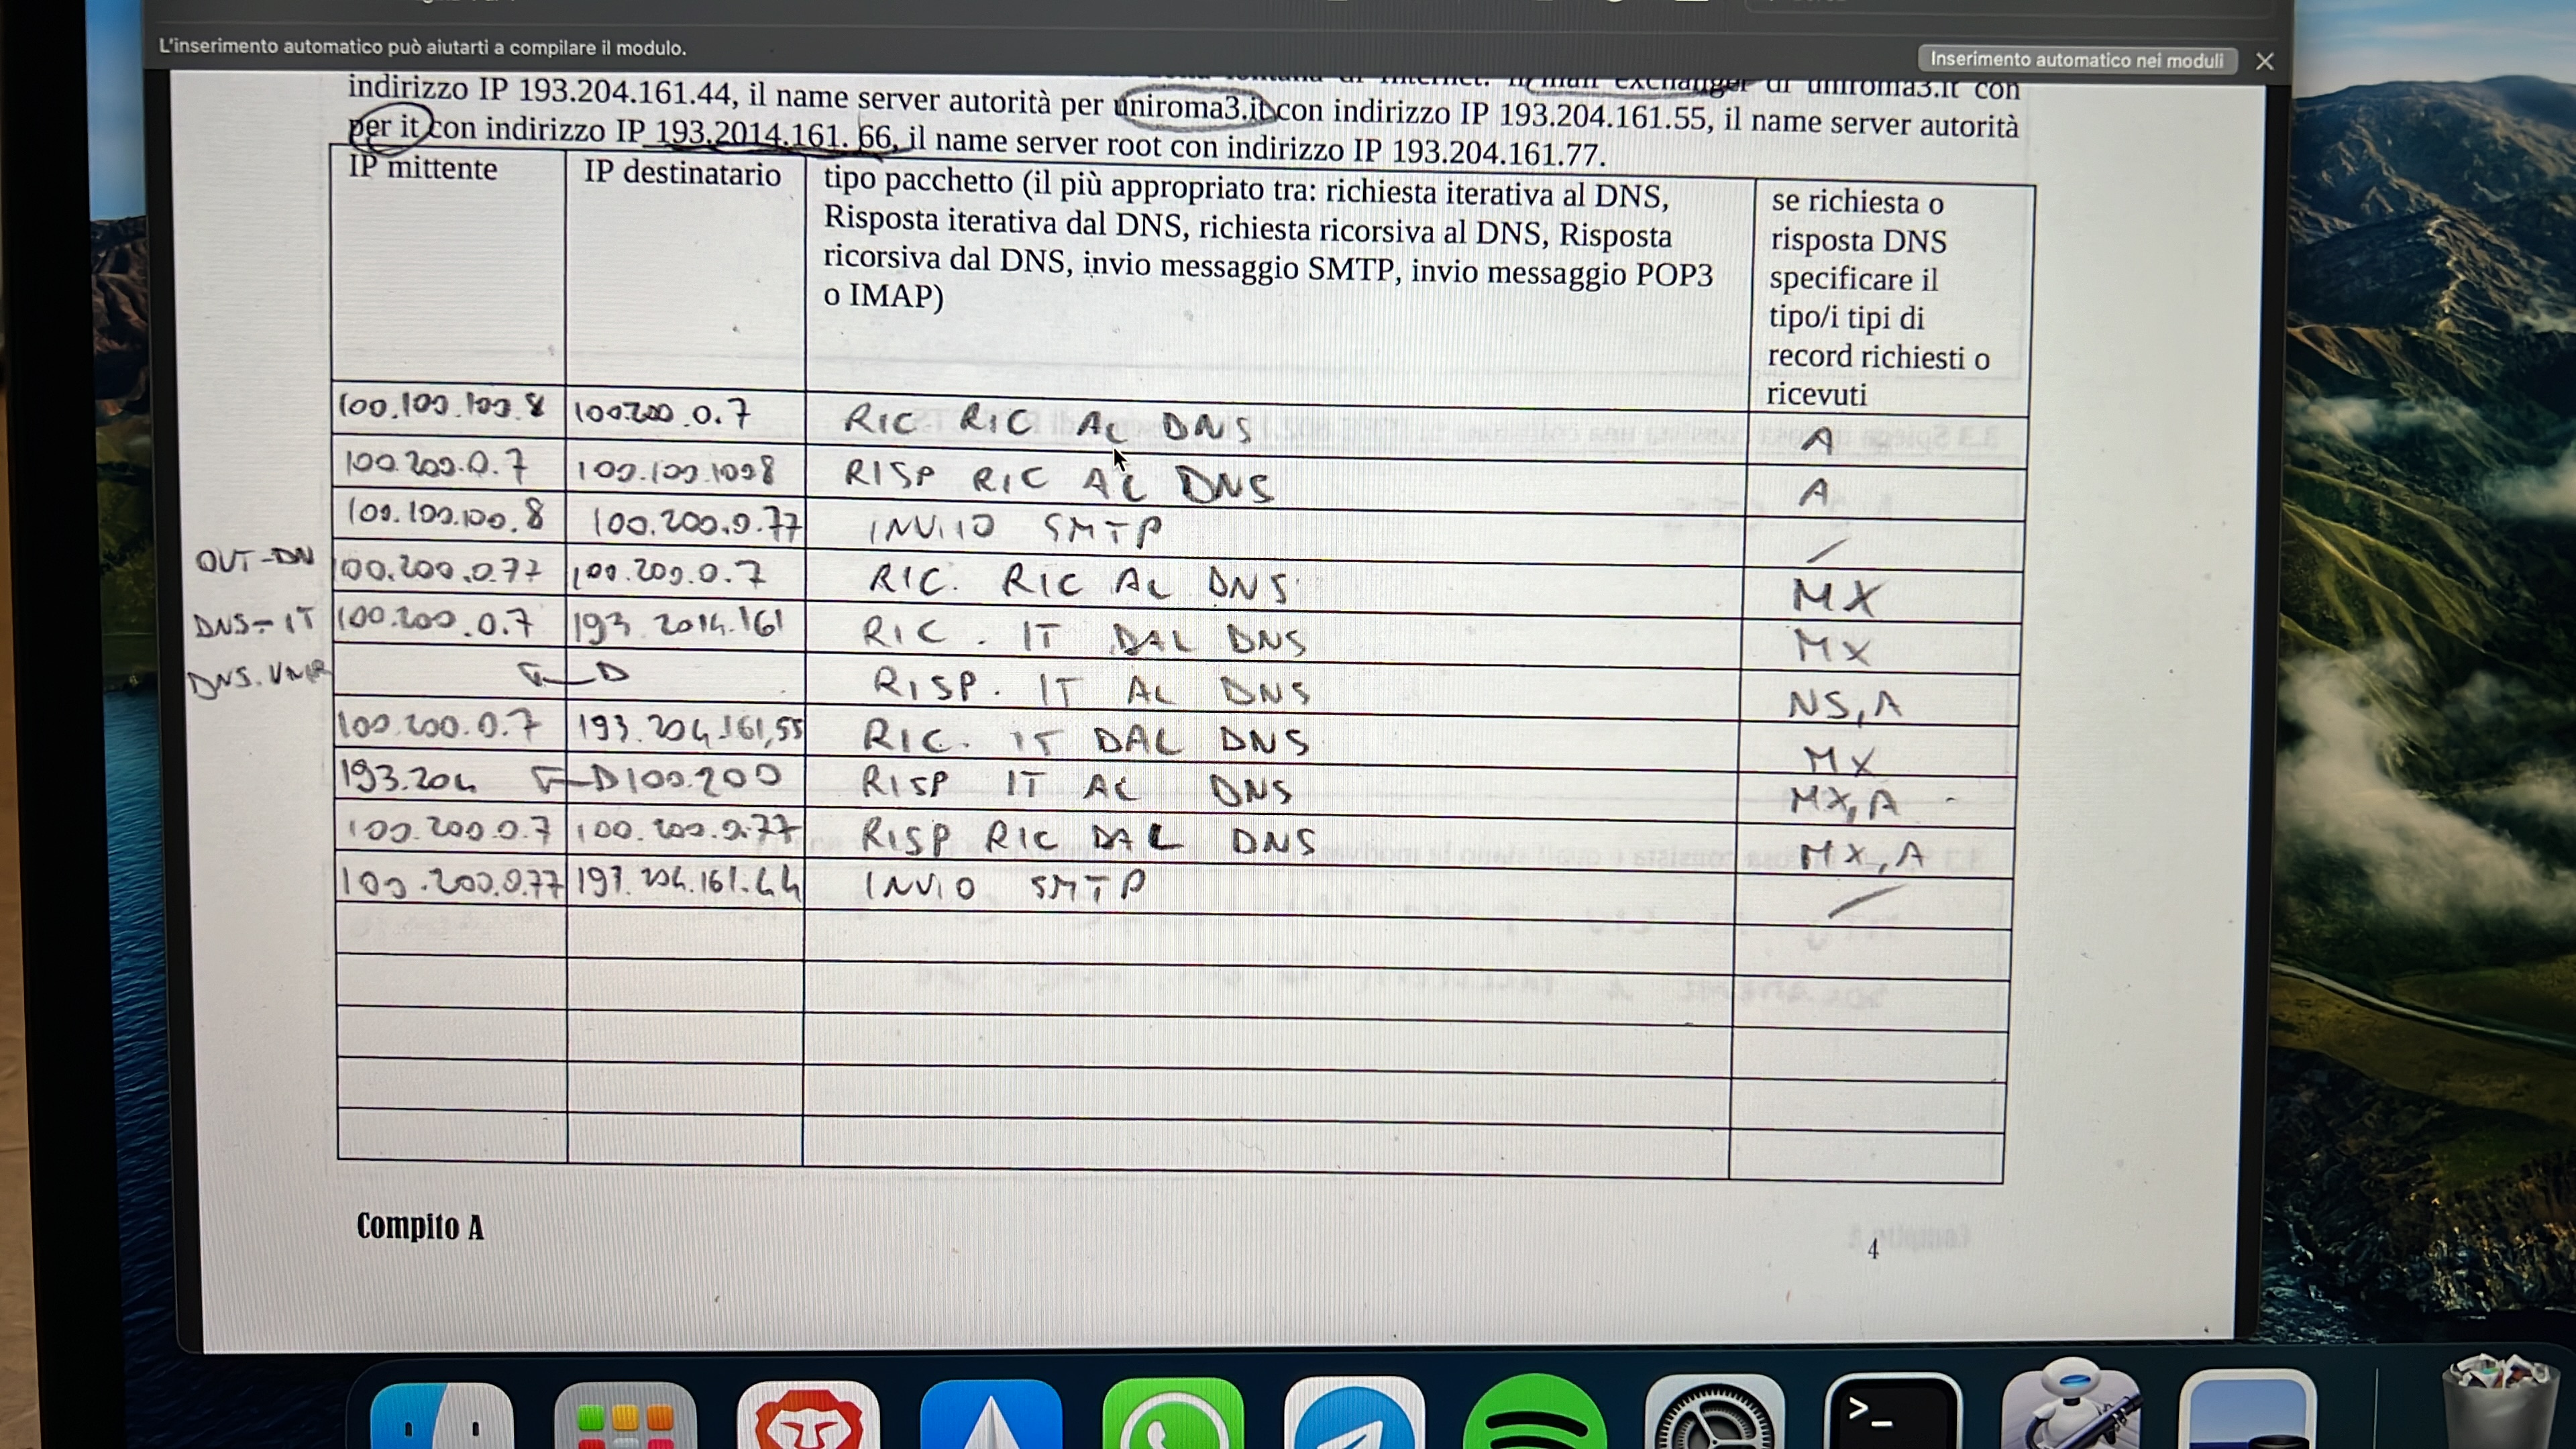 L'inserimento automatico può aiutarti a compilare il modulo.
Inserimento automatico nei moduli
mail exchanger di uniroma3.it con
indirizzo IP 193.204.161.44, il name server autorità per uniroma3.it con indirizzo IP 193.204.161.55, il name server autorità
per it con indirizzo IP 193.2014.161. 66, il name server root con indirizzo IP 193.204.161.77.
IP mittente
IP destinatario
tipo pacchetto (il più appropriato tra: richiesta iterativa al DNS,
Risposta iterativa dal DNS, richiesta ricorsiva al DNS, Risposta
ricorsiva dal DNS, invio messaggio SMTP, invio messaggio POP3
o IMAP)
se richiesta o
risposta DNS
specificare il
tipo/i tipi di
record richiesti o
ricevuti
100.100.100.8 100.200.0.7 RIC RIC AL DNS A
100.200.0.7 100.100.1008 RISP RIC AL DNS A
100.100.100.8 100.200.0.77 INVIIO SMTP /
OUT-DN 100.200.0.77 100.200.0.7 RIC. RIC AL DNS MX
DNS-IT 100.200.0.7 193.2014.161 RIC. IT DAL DNS MX
DNS. RISP. IT AL DNS NS,A
100.200.0.7 193.204.161,55 RIC. IT DAL DNS MX
193.204 100.200 RISP IT AL DNS MX,A
100.200.0.7 100.200.0.77 RISP RIC DAL DNS MX,A
100.200.0.77 193.204.161.44 INVIO SMTP /
Compito A
4